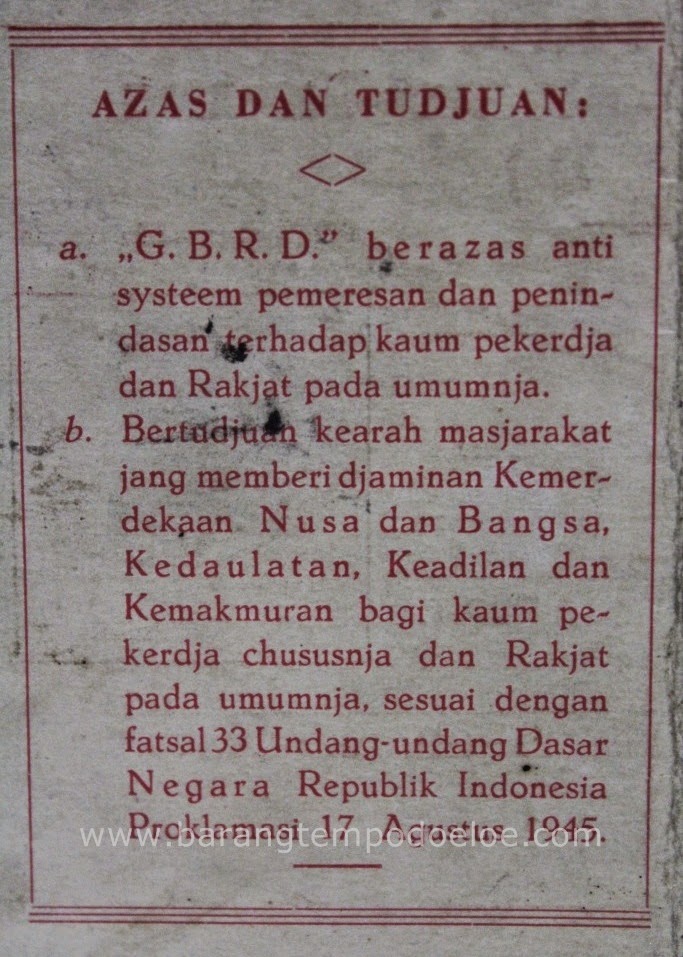 AZAS DAN TUDJUAN:
a. „G. B. R. D.” berazas anti
systeem pemeresan dan penin-
dasan terhadap kaum pekerdja
dan Rakjat pada umumnja.
b. Bertudjuan kearah masjarakat
jang memberi djaminan Kemer-
dekaan Nusa dan Bangsa,
Kedaulatan, Keadilan dan
Kemakmuran bagi kaum pe-
kerdja chususnja dan Rakjat
pada umumnja, sesuai dengan
fatsal 33 Undang-undang Dasar
Negara Republik Indonesia
Proklamasi 17 Agustus 1945.
www.barangtempodoeloe.com